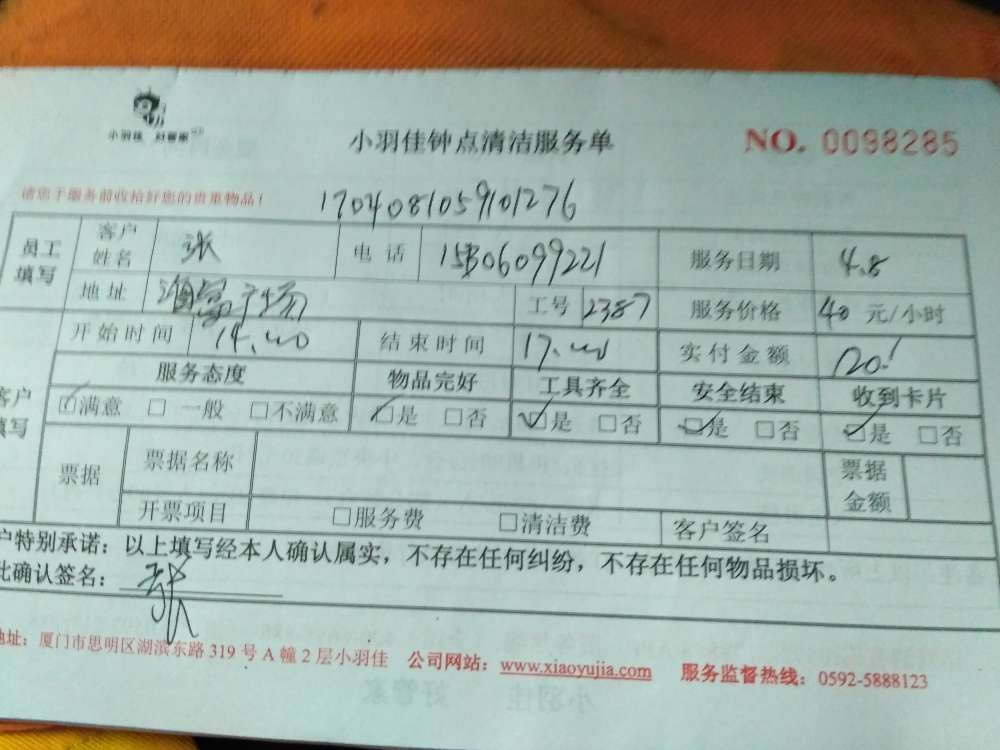 小羽佳 好管家
小羽佳钟点清洁服务单
NO. 0098285
请您于服务前收拾好您的贵重物品！
1704081059101276
员工填写 客户姓名 张 电话 15306099221 服务日期 4.8
地址 工号 2387 服务价格 40 元/小时
开始时间 14.00 结束时间 17.00 实付金额 120
服务态度 物品完好 工具齐全 安全结束 收到卡片
客户填写 ☑满意 □一般 □不满意 ☑是 □否 ☑是 □否 ☑是 □否 ☑是 □否
票据 票据名称 票据金额
开票项目 □服务费 □清洁费 客户签名
户特别承诺：以上填写经本人确认属实，不存在任何纠纷，不存在任何物品损坏。
此确认签名：
地址：厦门市思明区湖滨东路 319 号 A 幢 2 层小羽佳 公司网站：www.xiaoyujia.com 服务监督热线：0592-5888123